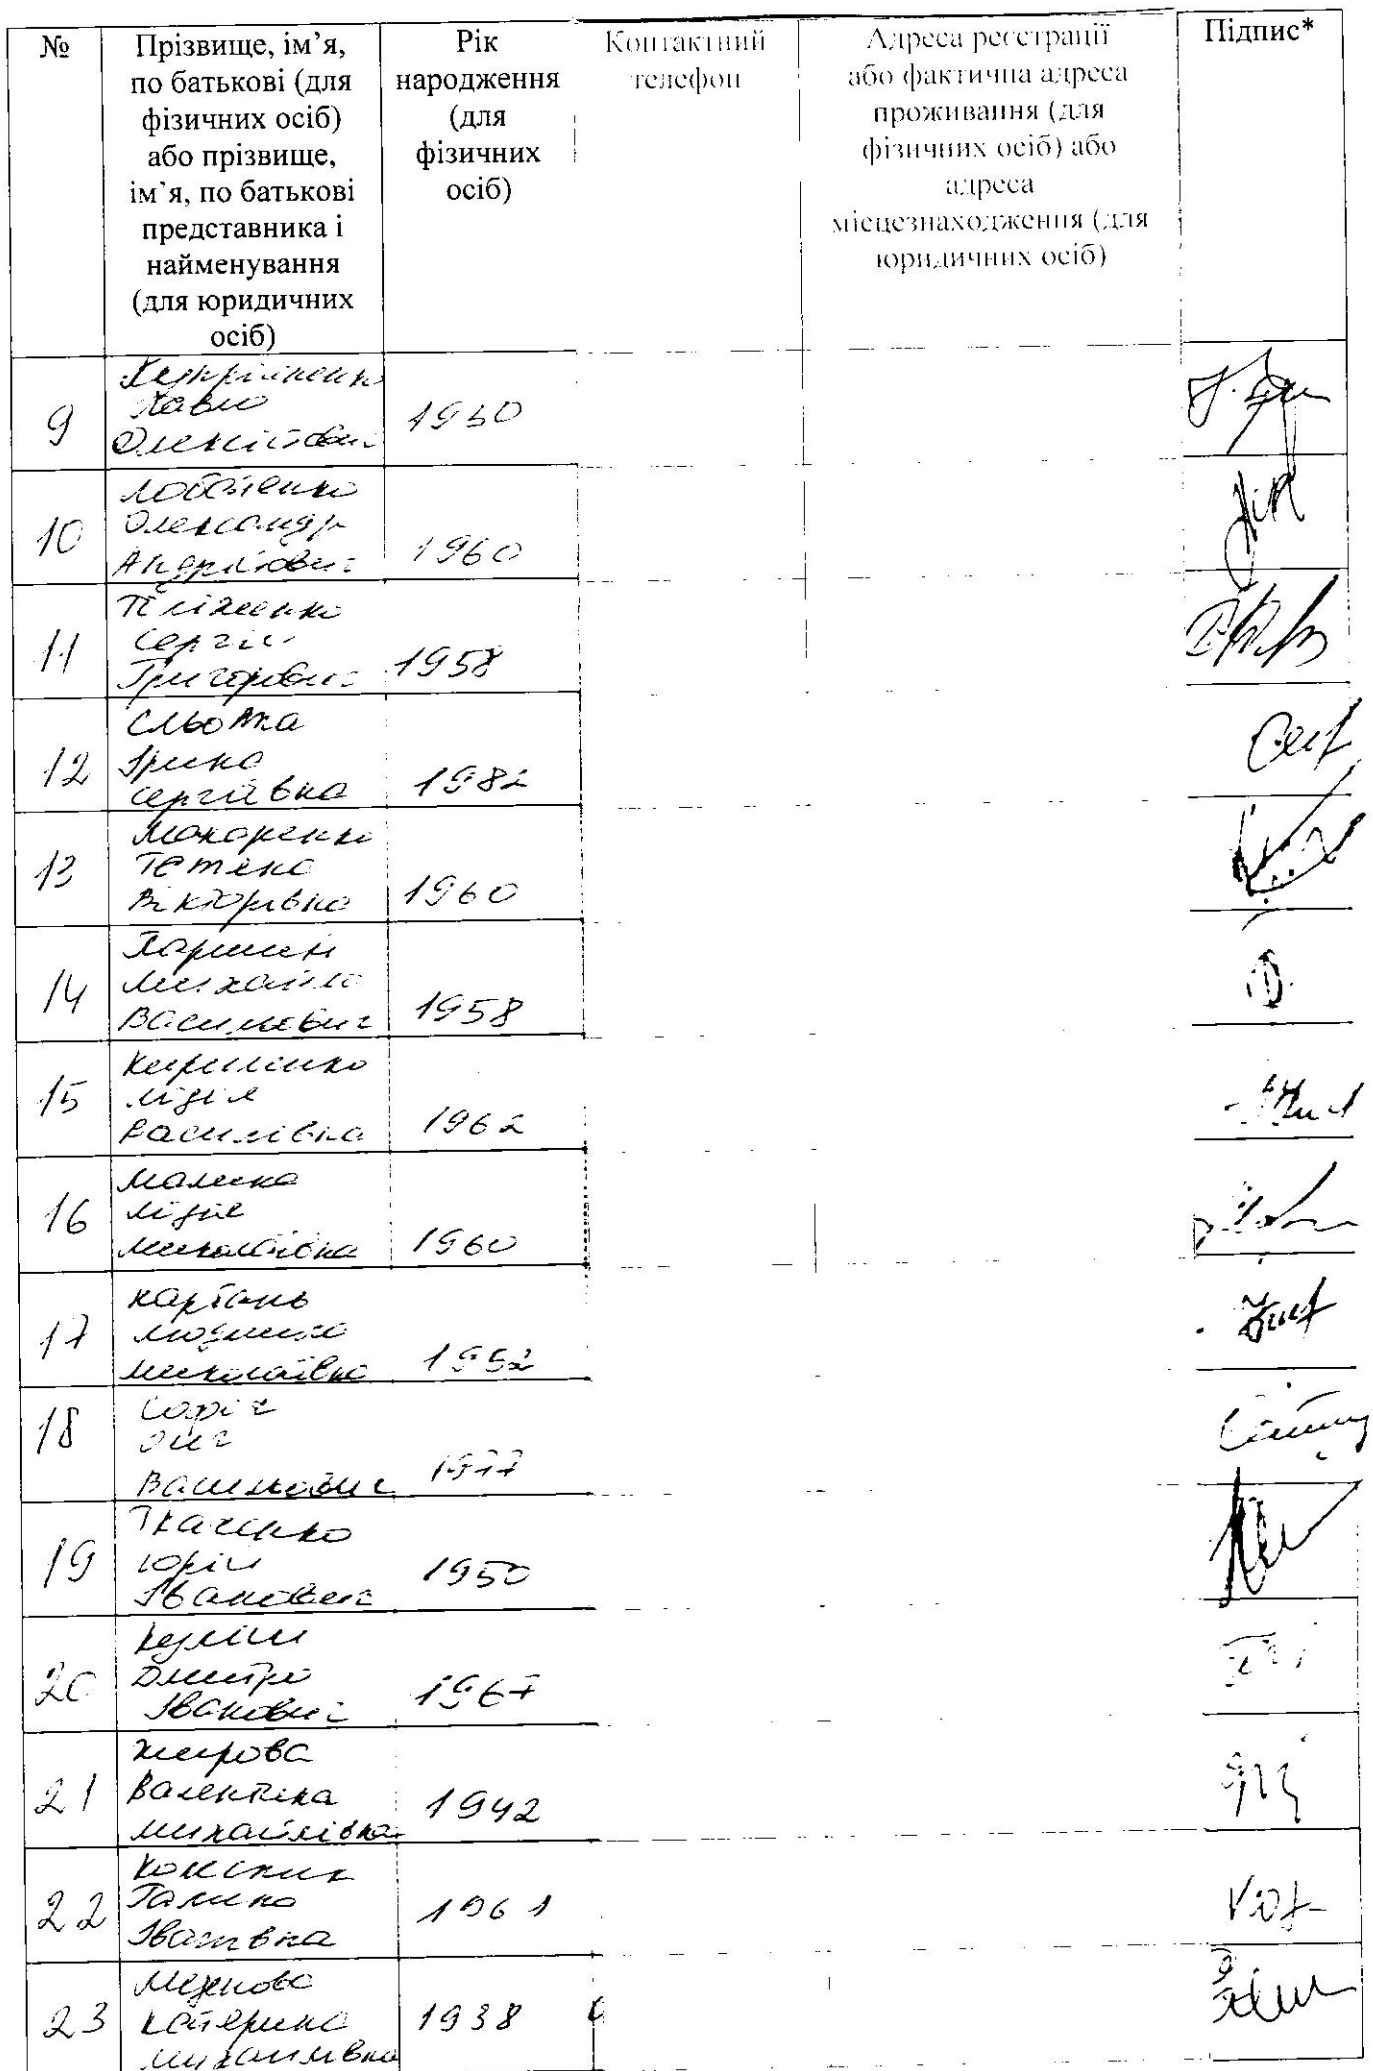 №
Прізвище, ім’я,
по батькові (для
фізичних осіб)
або прізвище,
ім`я, по батькові
представника і
найменування
(для юридичних
осіб)
Рік
народження
(для
фізичних
осіб)
Контактний
телефон
Адреса реєстрації
або фактична адреса
проживання (для
фізичних осіб) або
адреса
місцезнаходження (для
юридичних осіб)
Підпис*
9
Павло
Олексійович
10
Олександр
Андрійович
1960
11
Сергій
Григорович
1958
12
Сльозка
Ірина
Сергіївна
1982
13
Макаренко
Тетяна
Вікторівна
1960
14
Паршин
Михайло
Васильович
1958
15
Лідія
Василівна
1962
16
Лідія
Миколаївна
1960
17
Людмила
Миколаївна
1952
18
Олег
Васильович
1977
19
Ткаченко
Юрій
Іванович
1950
20
Дмитро
Іванович
1967
21
Жирова
Валентина
Михайлівна
1942
22
Галина
Іванівна
1961
23
Катерина
Михайлівна
1938